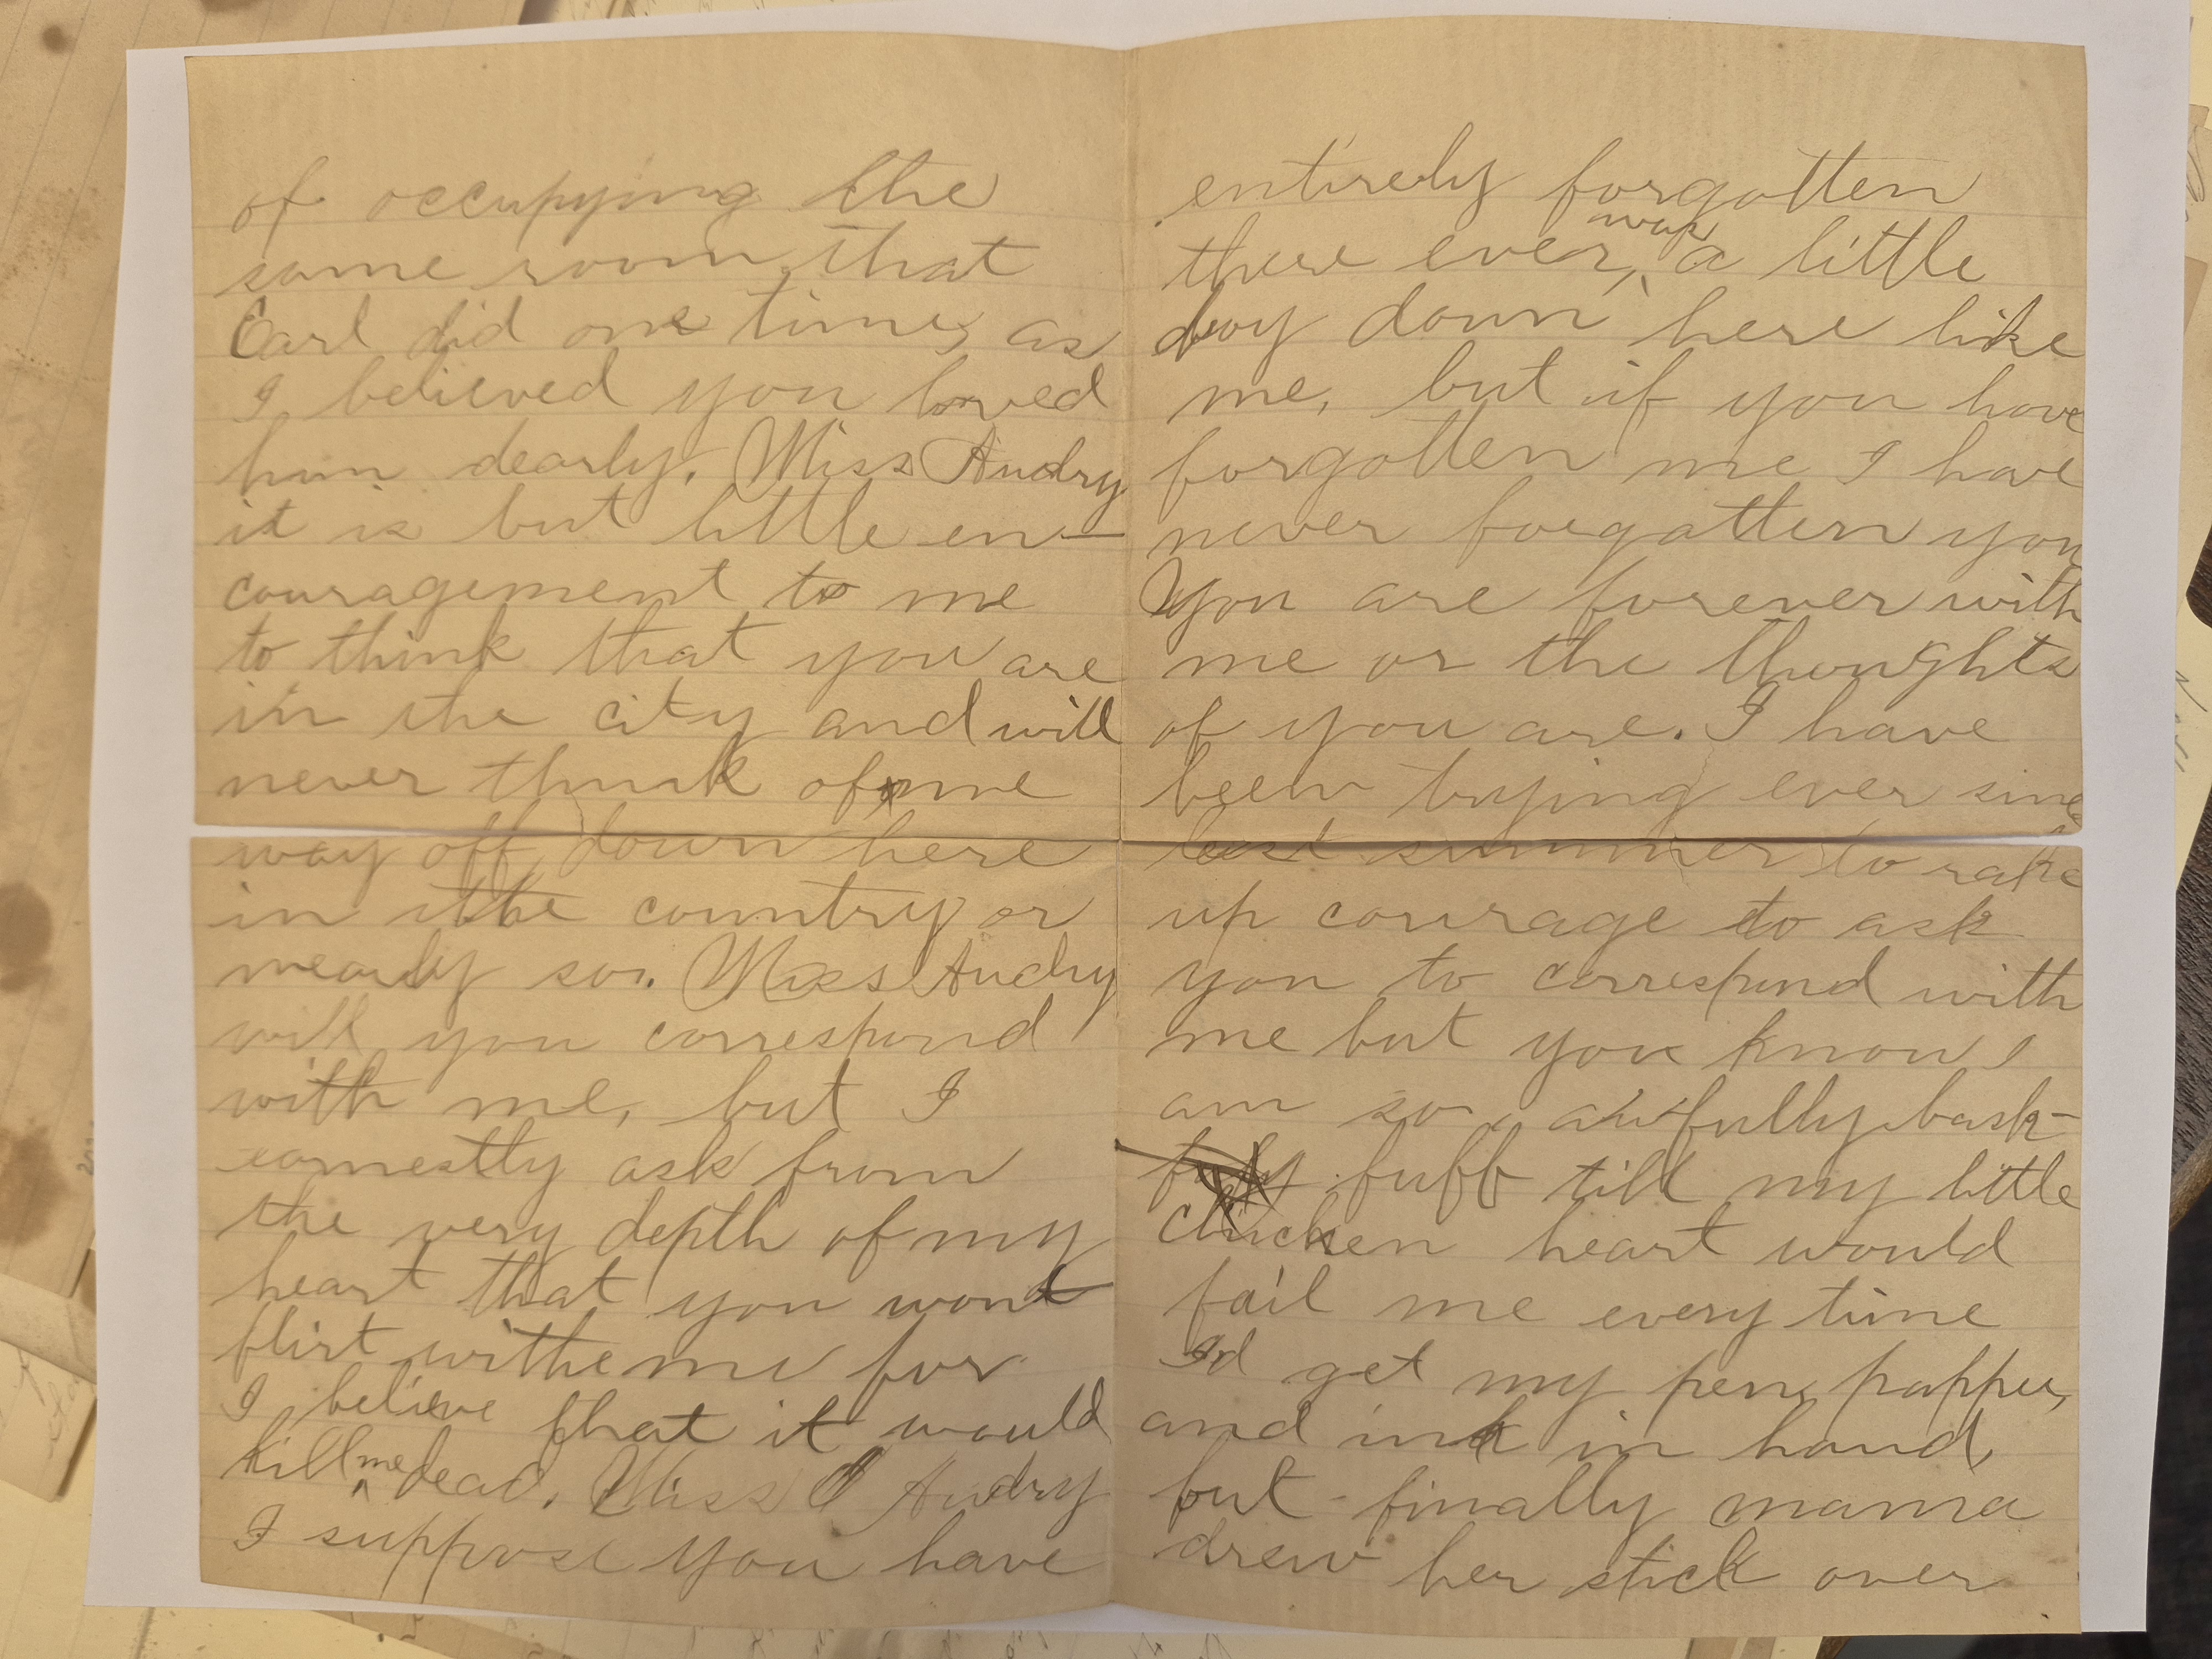 of occupying the
same room that
Earl did one time, as
I believed you loved
him dearly. Miss Audry
it is but little en-
couragement to me
to think that you are
in the city and will
never think of me
way off down here
in the country or
nearly so. Miss Audry
will you correspond
with me, but I
earnestly ask from
the very depth of my
heart that you wont
flirt withe me for
I believe that it would
kill me dead. Miss Audry
I suppose you have
entirely forgotten
there ever was a little
boy down here like
me, but if you have
forgotten me I have
never forgotten you
You are forever with
me or the thoughts
of you are. I have
been trying ever since
last summer to rake
up courage to ask
you to correspond with
me but you know I
am so awfully bash-
full till my little
chicken heart would
fail me every time
I'd get my pen, papper,
and ink in hand,
but finally mama
drew her stick over